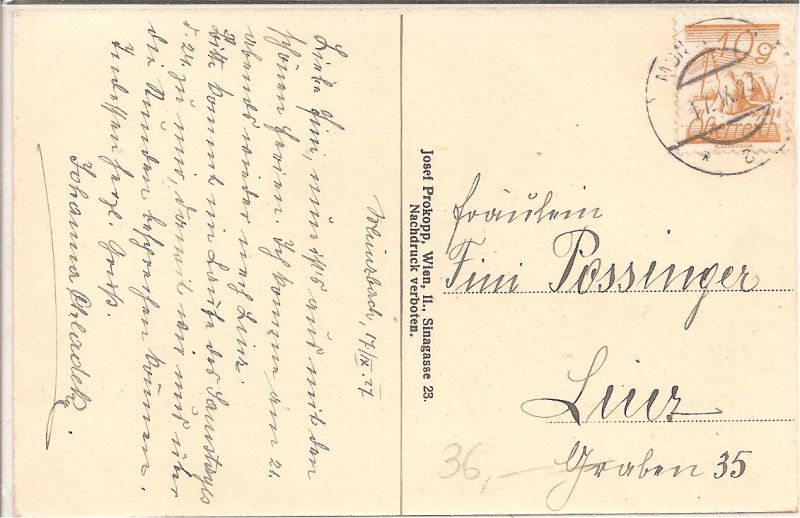 Münzbach, 17/IX. 27
Liebe Fini, nun ist's aus mit den
schönen Ferien. Ich komme am 21.
abends wieder nach Linz.
Bitte kommt im Laufe des Samstags
d. 24. zu mir, damit wir uns über
die Stunden besprechen können.
Indessen herzl. Gruß.
Johanna Chladek.
Josef Prokopp, Wien, II., Sinagasse 23.
Nachdruck verboten.
10g
Österreich
Fräulein
Fini Possinger
Linz
Graben 35
36,—